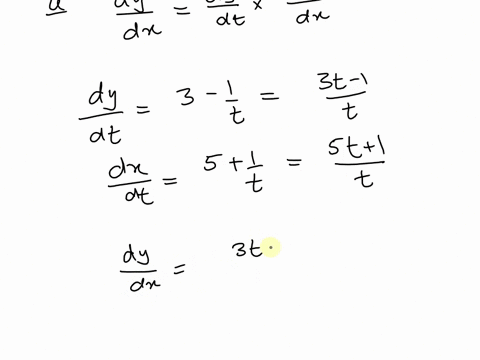 a dy/dx = dy/dt × /dx
dy/dt = 3 - 1/t = 3t-1/t
dx/dt = 5 + 1/t = 5t+1/t
dy/dx = 3t